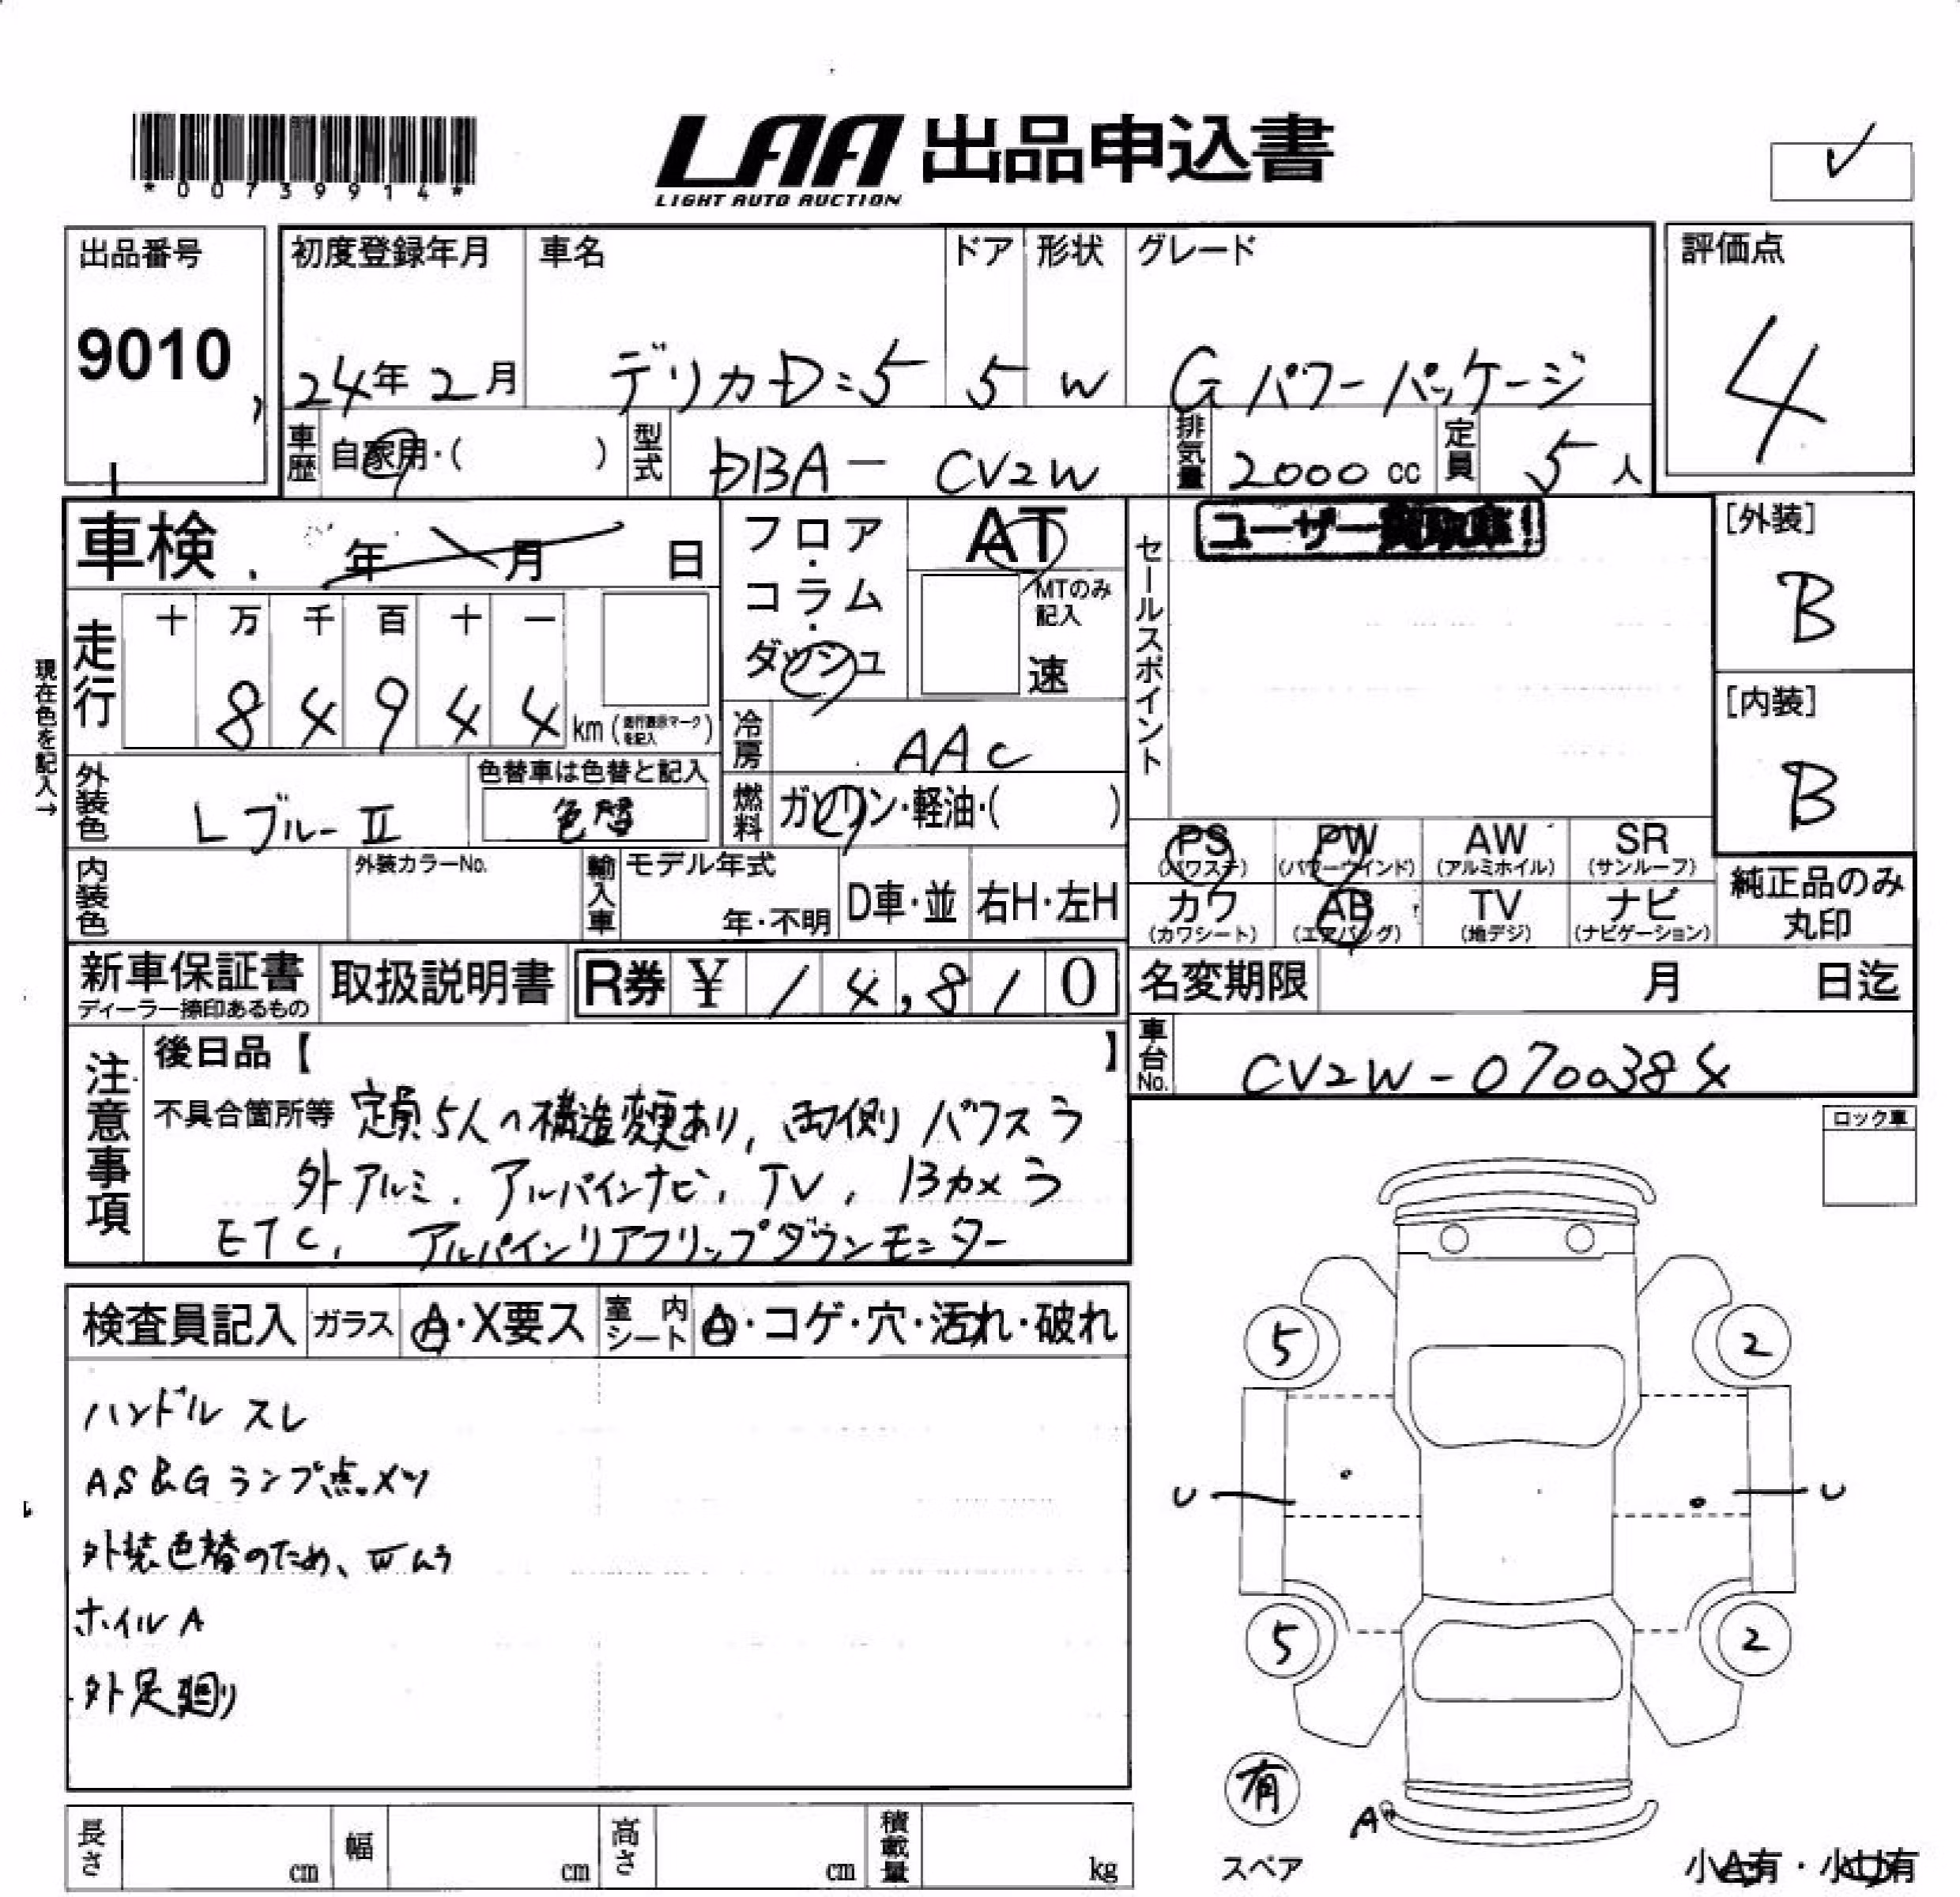 *00739914*
LAA 出品申込書
LIGHT AUTO AUCTION
出品番号
9010
初度登録年月
24年2月
車名
デリカD:5
ドア
5
形状
W
グレード
Gパワーパッケージ
評価点
4
車歴 自家用・( )
型式 DBA-CV2W
排気量 2000cc
定員 5人
車検 年 月 日
フロア・コラム・ダッシュ
AT
MTのみ記入
速
セールスポイント
ユーザー買取車!
[外装]
B
[内装]
B
現在色を記入→
走行
十 万 千 百 十 一
8 4 9 4 4 km (走行表示マークを記入)
冷房 AAC
燃料 ガソリン・軽油・( )
外装色 LブルーII
色替車は色替と記入
色替
内装色
外装カラーNo.
輸入車
モデル年式
年・不明
D車・並
右H・左H
PS (パワステ)
PW (パワーウインド)
AW (アルミホイル)
SR (サンルーフ)
カワ (カワシート)
AB (エアバッグ)
TV (地デジ)
ナビ (ナビゲーション)
純正品のみ丸印
新車保証書
ディーラー捺印あるもの
取扱説明書
R券 ¥ 14,810
名変期限 月 日迄
車台No. CV2W-0700384
注意事項
後日品【 】
不具合箇所等 定員5人へ構造変更あり, 両側パワスラ
外アルミ. アルパインナビ, TV, Bカメラ
ETC, アルパインリアフリップダウンモニター
ロック車
検査員記入
ガラス A・X要ス
室内シート A・コゲ・穴・汚れ・破れ
ハンドル スレ
AS&Gランプ点メツ
外装色替のため、ムラ
ホイルA
外足廻り
5
2
U
U
5
2
有
スペア
A
小A有・小U有
長さ cm
幅 cm
高さ cm
積載量 kg